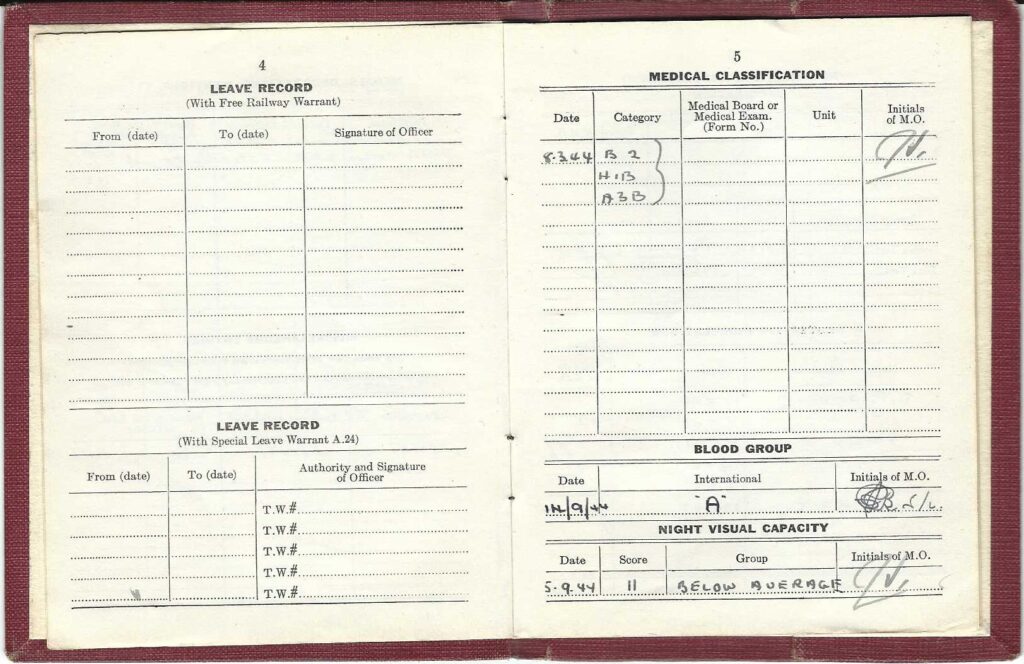 4
LEAVE RECORD
(With Free Railway Warrant)
From (date) To (date) Signature of Officer
LEAVE RECORD
(With Special Leave Warrant A.24)
From (date) To (date) Authority and Signature
of Officer
T.W.#
T.W.#
T.W.#
T.W.#
T.W.#
5
MEDICAL CLASSIFICATION
Date Category Medical Board or
Medical Exam.
(Form No.) Unit Initials
of M.O.
8.3.44 B 2
H1B
A3B
BLOOD GROUP
Date International Initials of M.O.
14/9/44 "A"
NIGHT VISUAL CAPACITY
Date Score Group Initials of M.O.
5.9.44 11 BELOW AVERAGE